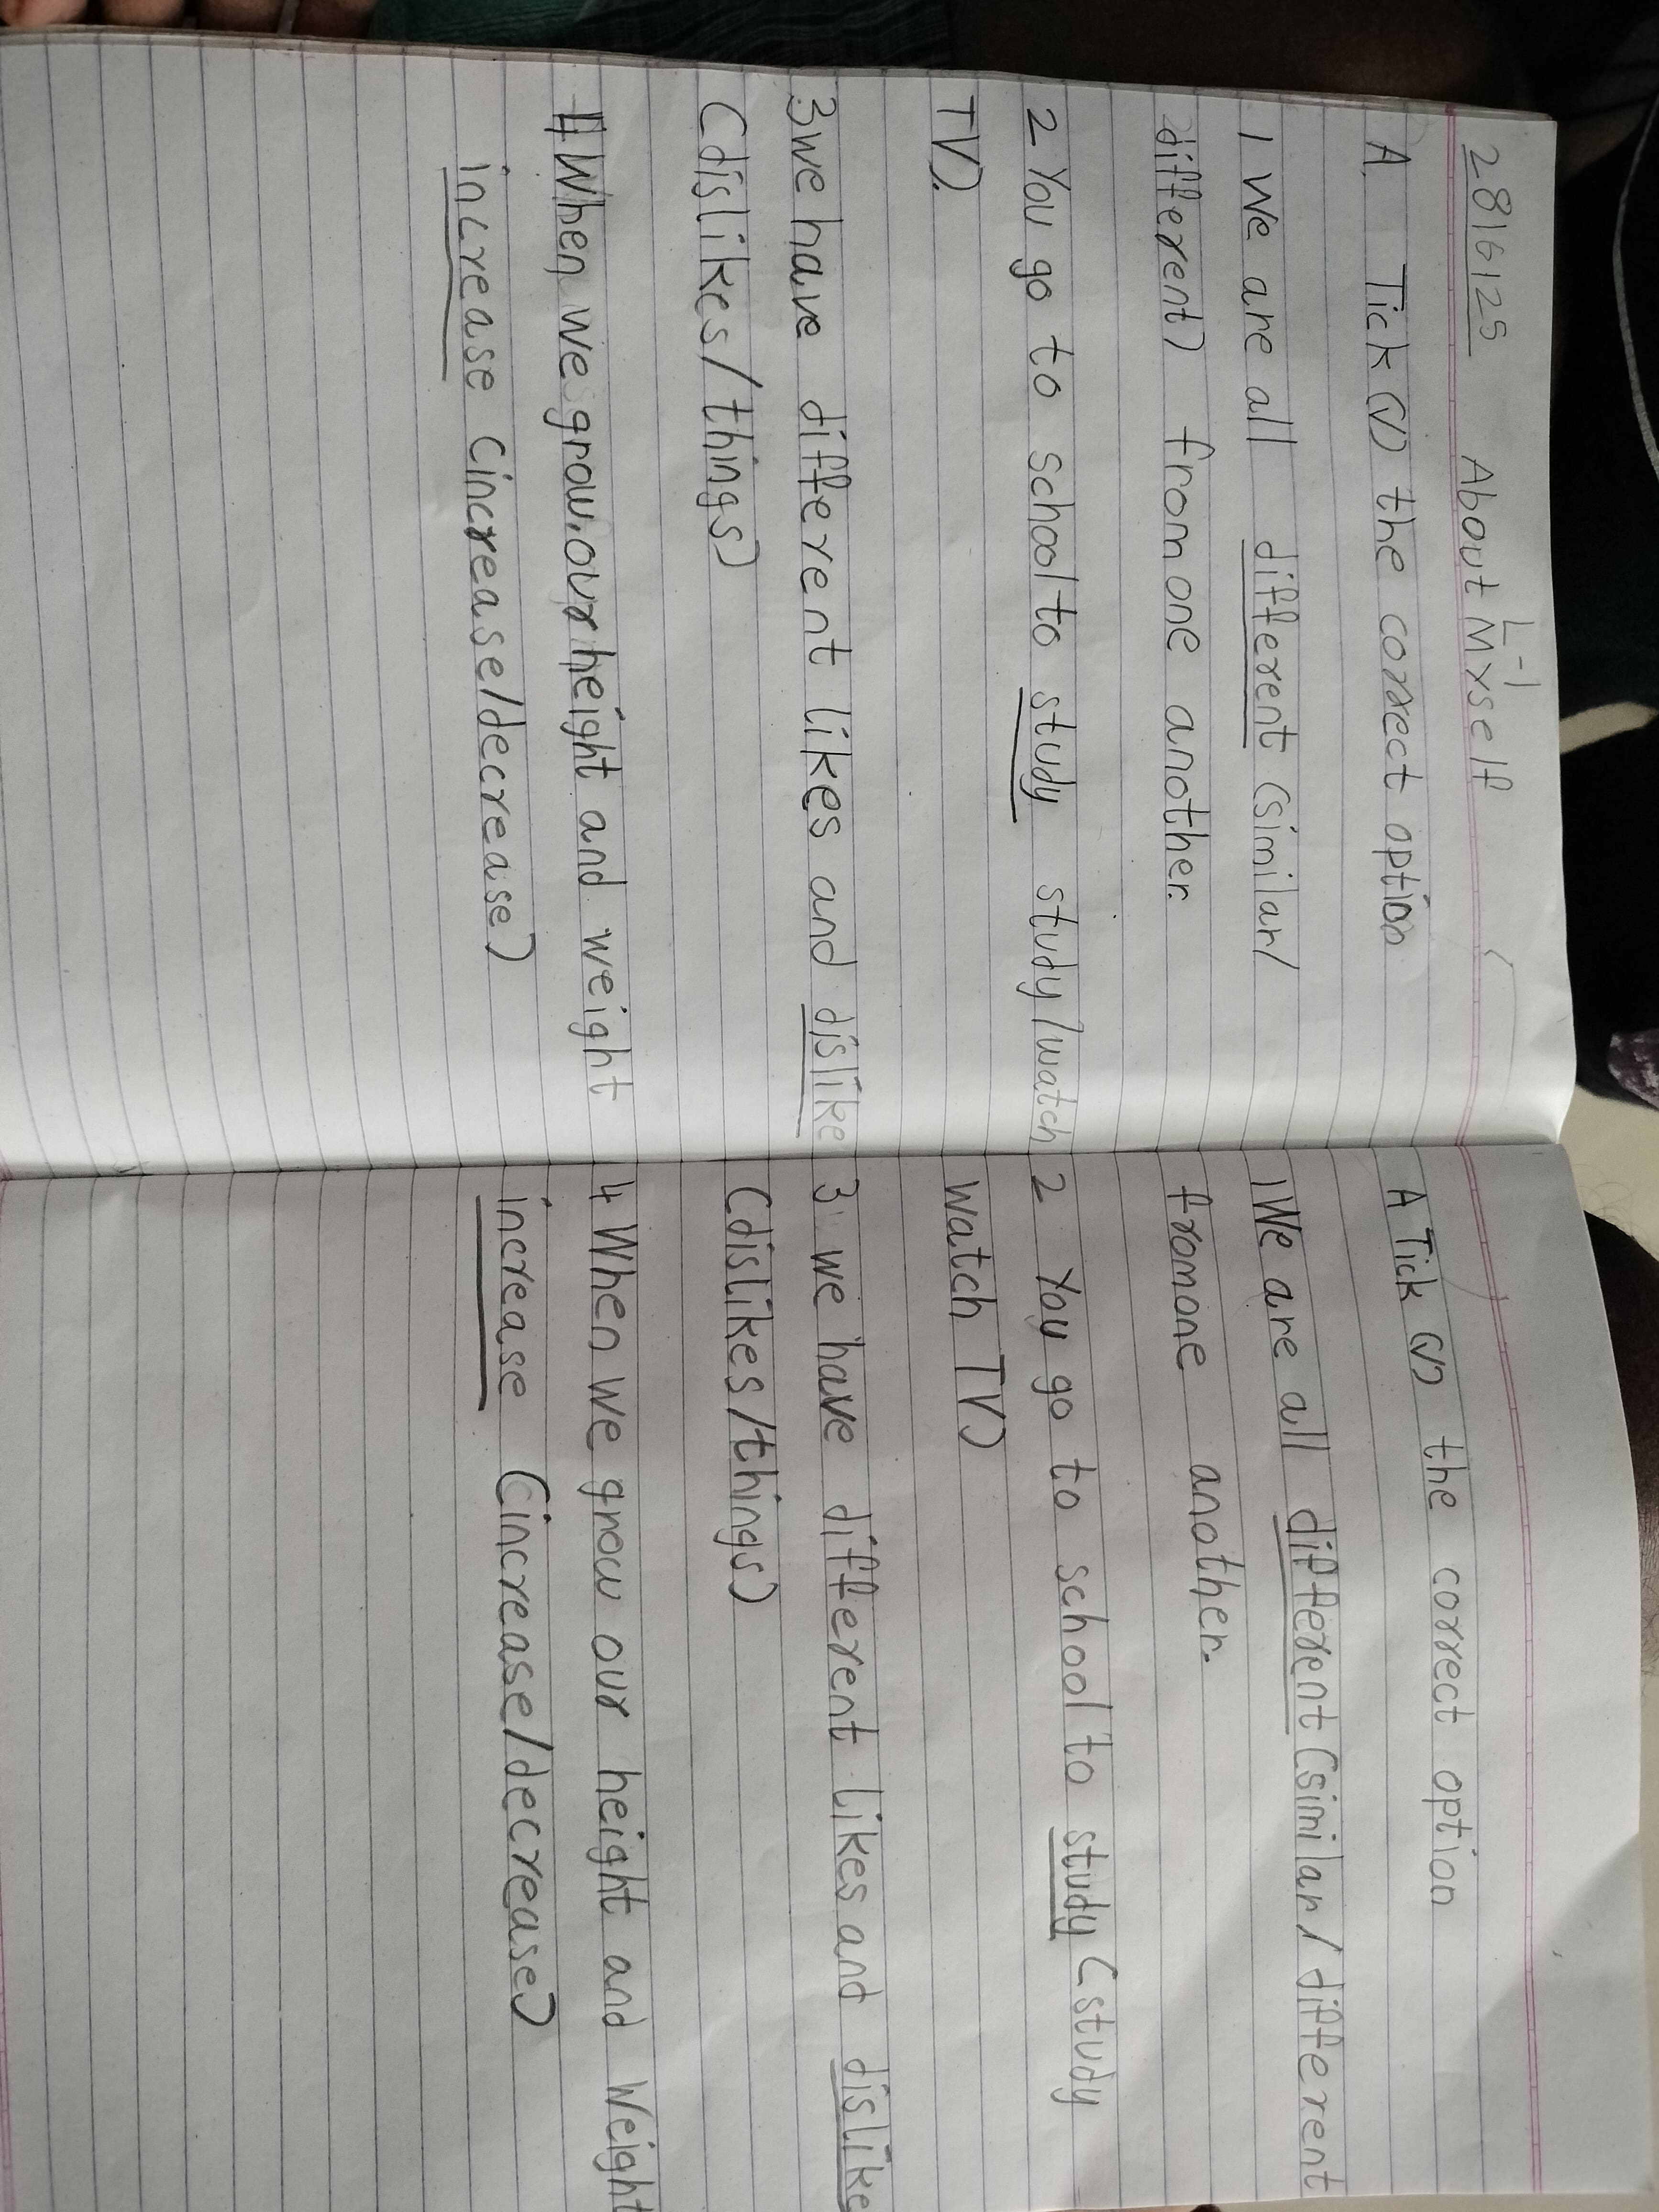 28/6/25
L-1
About Myself
A Tick (✓) the correct option
1 We are all different (similar/
different) from one another.
2 You go to school to study study/watch
TV).
3 we have different likes and dislike
(dislikes/things)
4 When we grow, our height and weight
increase (increase/decrease)
A Tick (✓) the correct option
1 We are all different (similar/different
from one another.
2 You go to school to study (study
watch TV)
3 we have different likes and dislike
(dislikes/things)
4 When we grow our height and Weight
increase (increase/decrease)